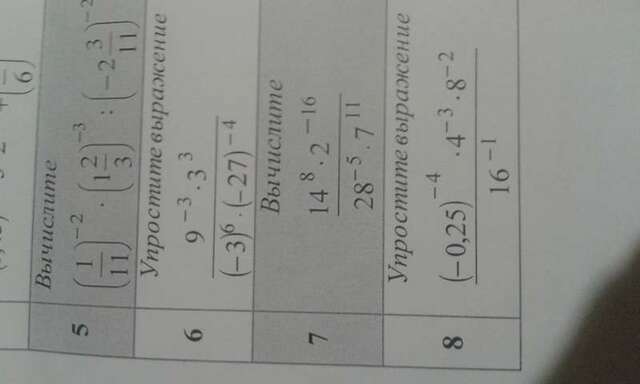 5 Вычислите
(1/11)^{-2} · (1 2/3)^{-3} : (-2 3/11)^{-2}
6 Упростите выражение
9^{-3} · 3^3
(-3)^6 · (-27)^{-4}
7 Вычислите
14^8 · 2^{-16}
28^{-5} · 7^{11}
8 Упростите выражение
(-0,25)^{-4} · 4^{-3} · 8^{-2}
16^{-1}